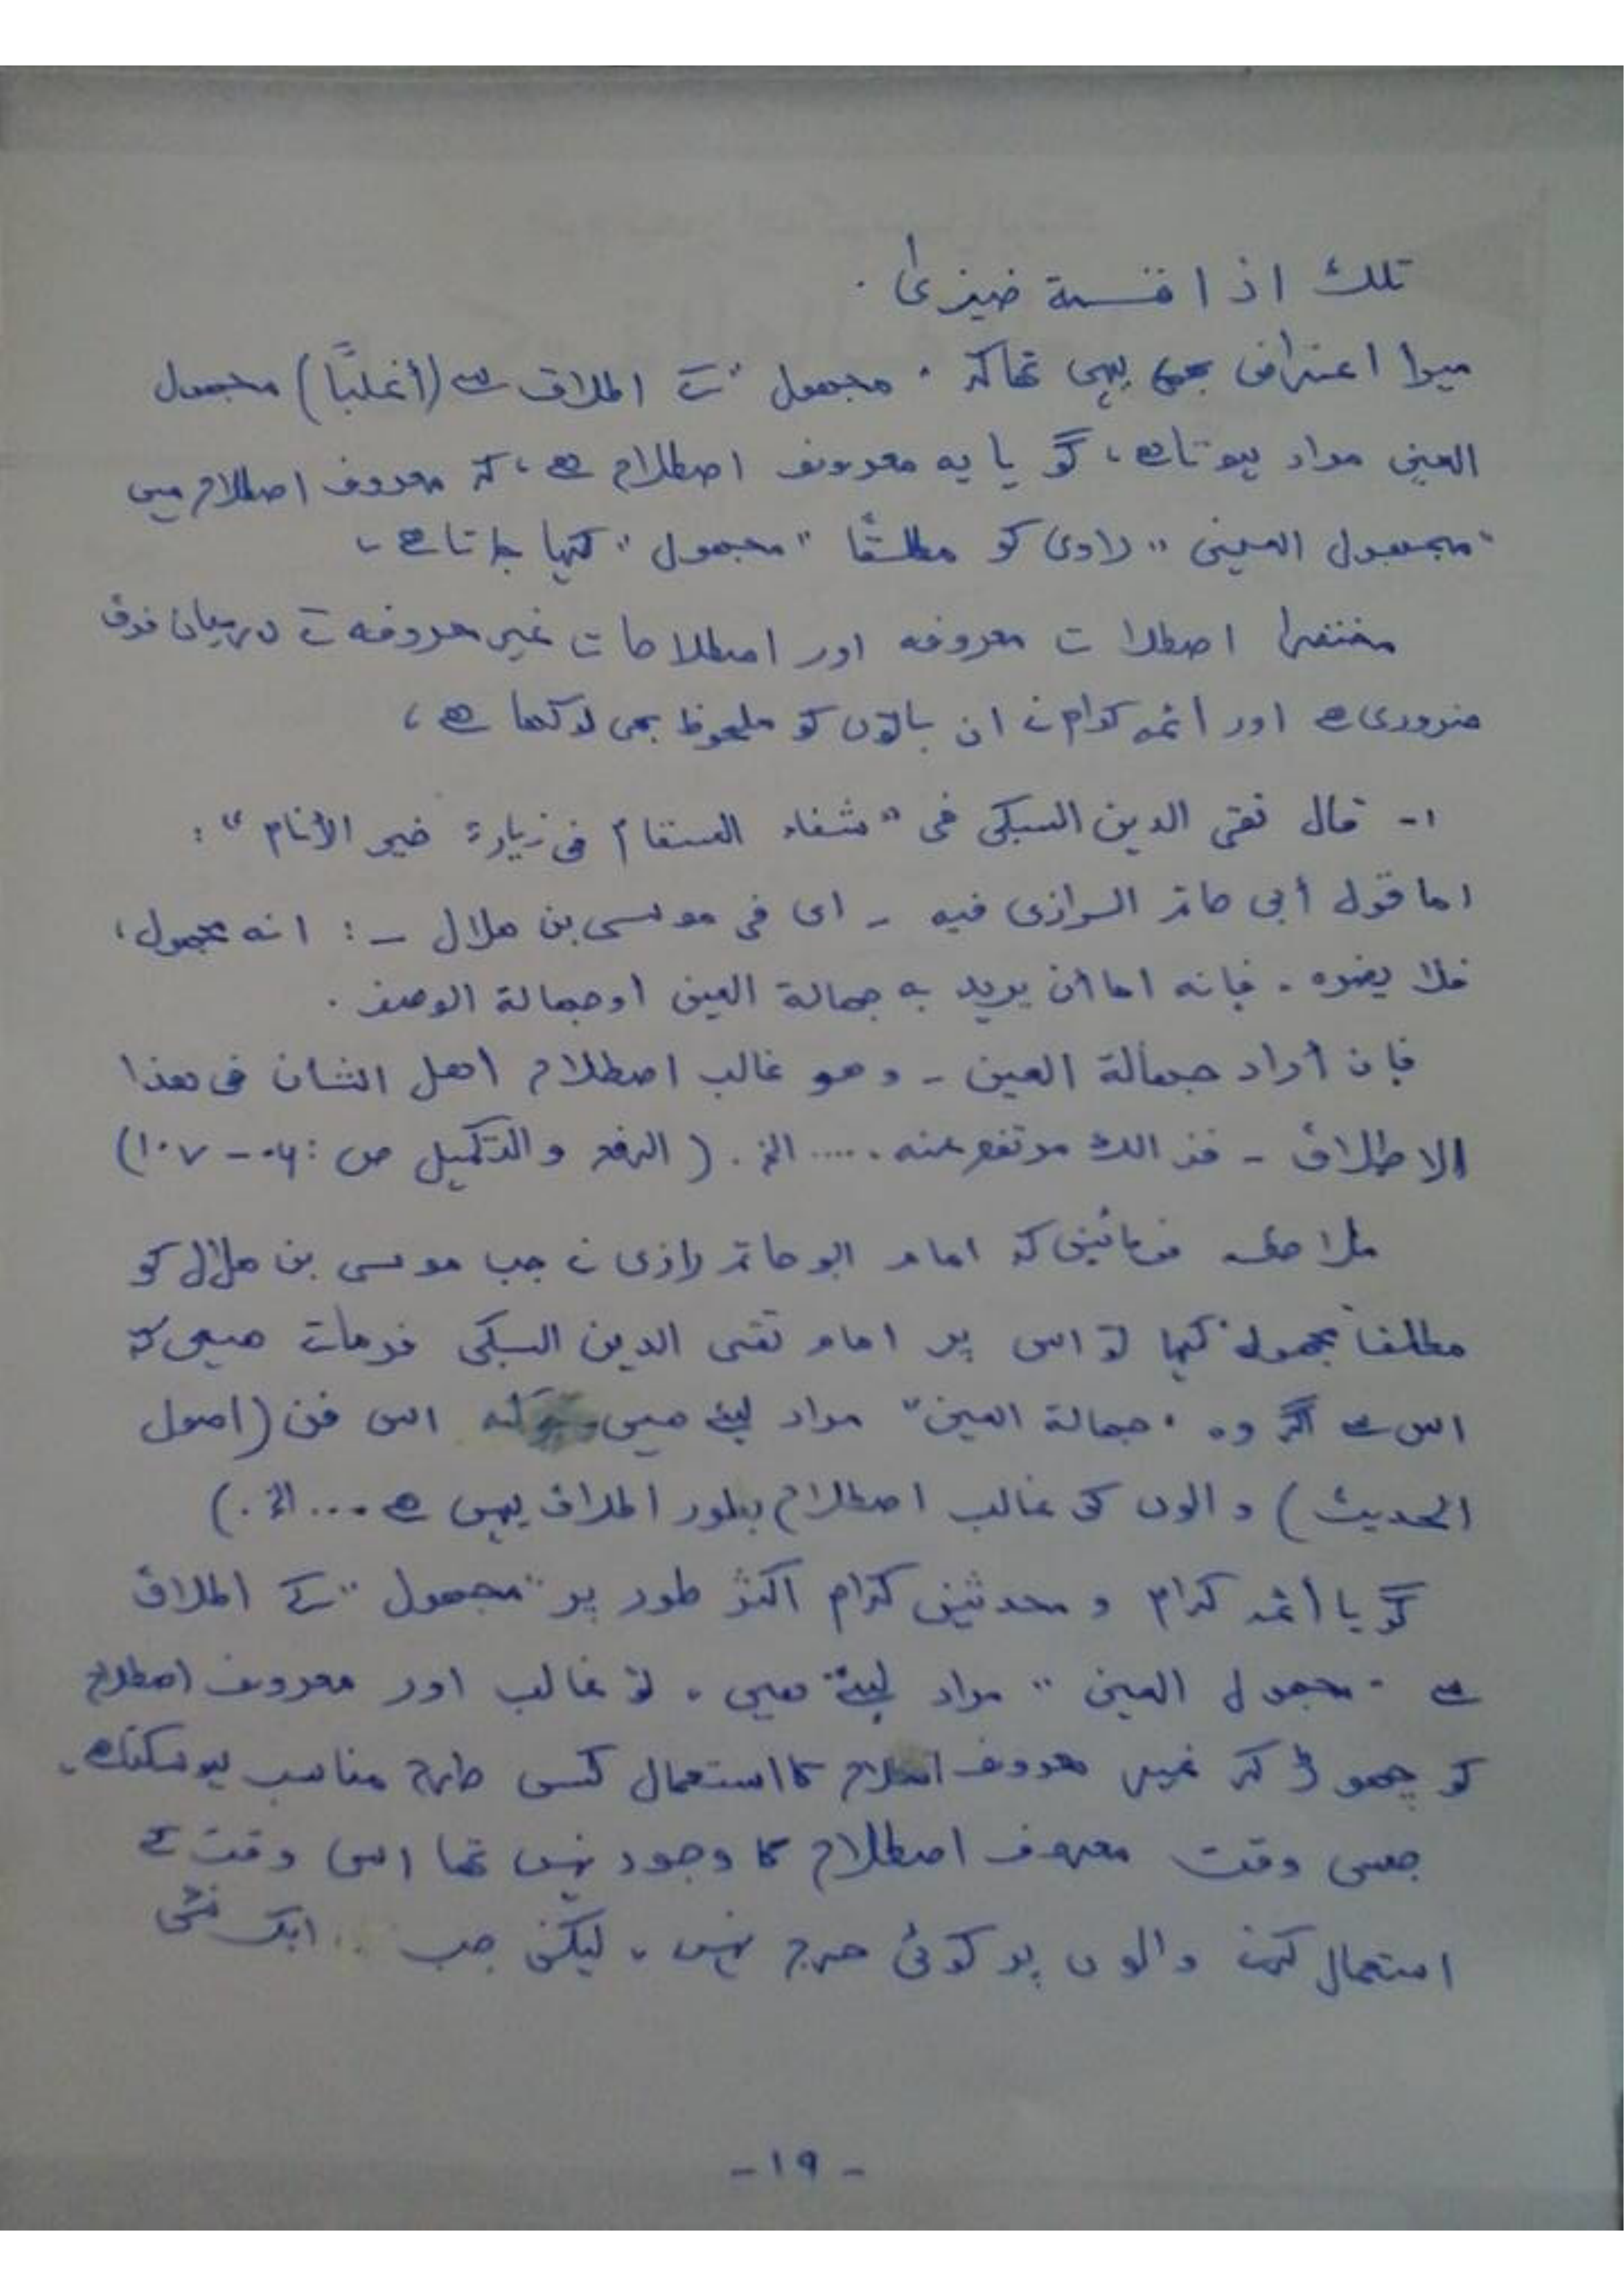 تلك اذا قسمة ضيزىٰ .
میرا اعتراض بھی یہی تھا کہ "مجہول" کے اطلاق سے (أغلبًا) مجہول
العین مراد ہوتا ہے، گویا یہ معروف اصطلاح ہے، کہ معروف اصطلاح میں
"مجہول العین" راوی کو مطلقًا "مجہول" کہا جاتا ہے،
مختصرا اصطلات معروفہ اور اصطلاحات غیر معروفہ کے درمیان فرق
ضروری ہے اور أئمہ کرام نے ان باتوں کو ملحوظ بھی رکھا ہے،
۱- قال تقی الدین السبکی فی "شفاء السقام فی زیارة خیر الأنام":
اما قول أبی حاتم الرازی فیه - ای فی موسی بن ھلال -: انه مجہول،
فلا یضره . فإنه اما أن یرید به جہالة العین او جہالة الوصف .
فإن أراد جہالة العین - و ھو غالب اصطلاح اھل الشان فی ھذا
الاطلاق - فذالك مرتفع عنه ..... الخ . (الرفع و التکمیل ص: ۱۰۶-۱۰۷)
ملاحظہ فرمائیں کہ امام ابو حاتم رازی نے جب موسی بن ھلال کو
مطلقا "مجہول" کہا تو اس پر امام تقی الدین السبکی فرماتے ھیں کہ
اس سے اگر وہ "جہالة العین" مراد لیتے ھیں کہ اس فن (اصول
الحدیث) والوں کی غالب اصطلاح بطور اطلاق یہی ہے .... الخ .)
گویا أئمہ کرام و محدثین کرام اکثر طور پر "مجہول" کے اطلاق
سے "مجہول العین" مراد لیتے ھیں، تو غالب اور معروف اصطلاح
کو چھوڑ کر غیر معروف اصطلاح کا استعمال کس طرح مناسب ہو سکتا ہے.
جس وقت معروف اصطلاح کا وجود نہیں تھا اس وقت کے
استعمال کرنے والوں پر کوئی حرج نہیں، لیکن جب .. ایک نئی
- ۱۹ -